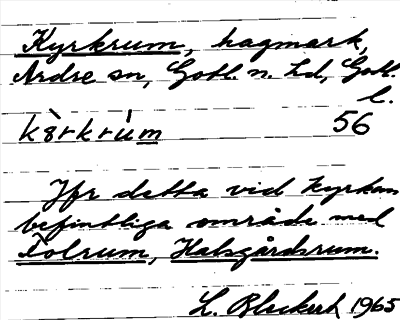 Kyrkrum, hagmark,
Ardre sn, Gotl. n. hd, Gotl.
l.
kì̀rkrù̀m 56
Jfr detta vid kyrkan
befintliga område med
Folrum, Halsgårdsrum.
L. Bleckert 1965